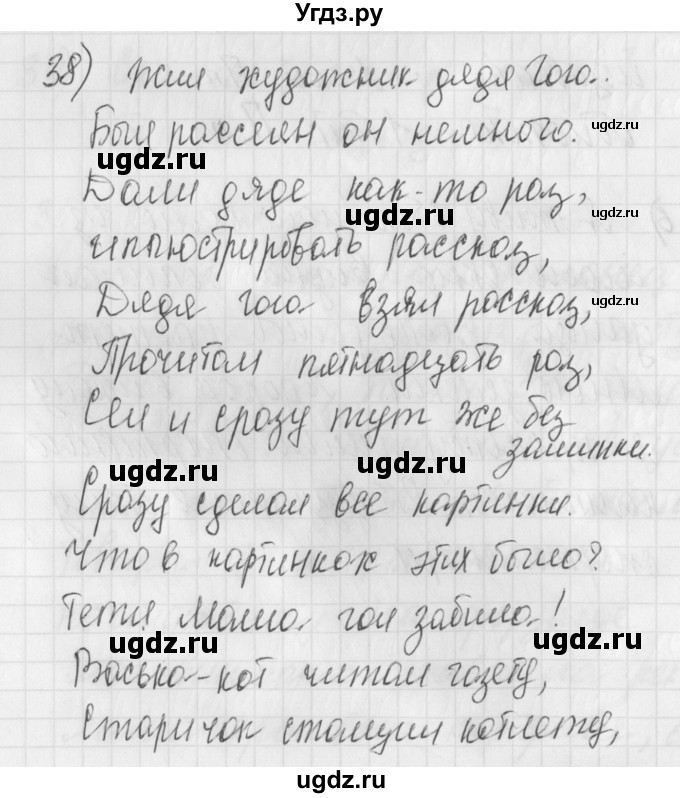 Угдз.ру
38) Жил художник дядя Гога.
Был рассеян он немного.
ugdz.ru
ugdz.ru
Дали дяде как-то раз,
ugdz.ru
ugdz.ru
иллюстрировать рассказ,
ugdz.ru
Дядя Гога взял рассказ,
ugdz.ru
Прочитал пятнадцать раз,
Сел и сразу тут же без
запинки.
ugdz.ru
ugdz.ru
Сразу сделал все картинки.
ugdz.ru
Что в картинках этих было?
Тётя Маша гол забила!
ugdz.ru
ugdz.ru
Васька-кот читал газету,
ugdz.ru
Старичок стащил котлету,
ugdz.ru
ugdz.ru